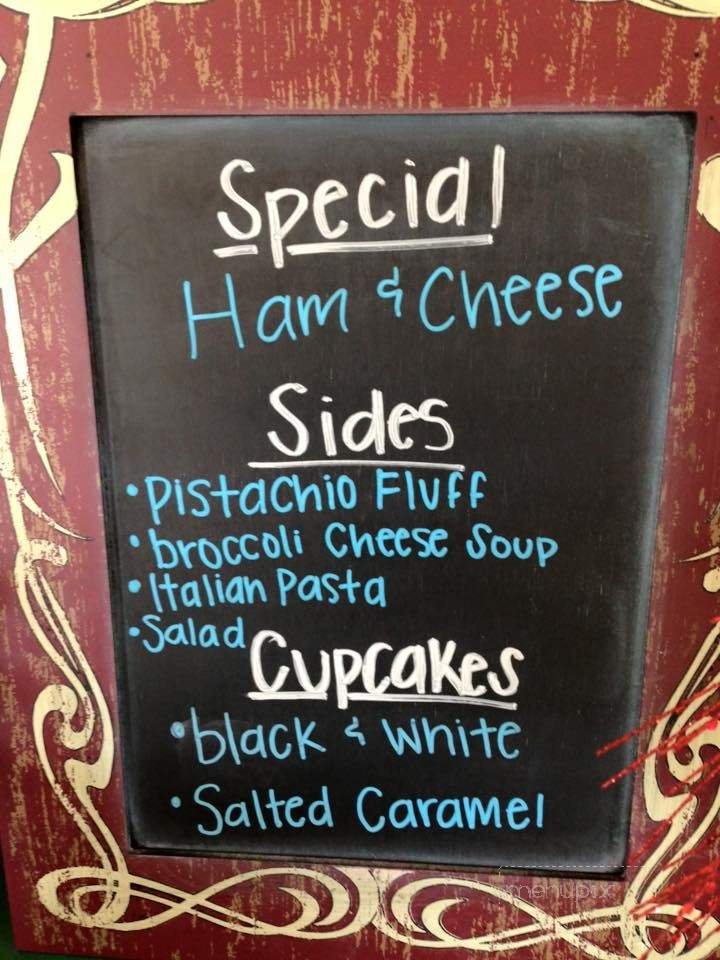 Special
Ham & Cheese
Sides
• Pistachio Fluff
• broccoli Cheese Soup
• Italian Pasta
• Salad
Cupcakes
• black & white
• Salted Caramel
menupix